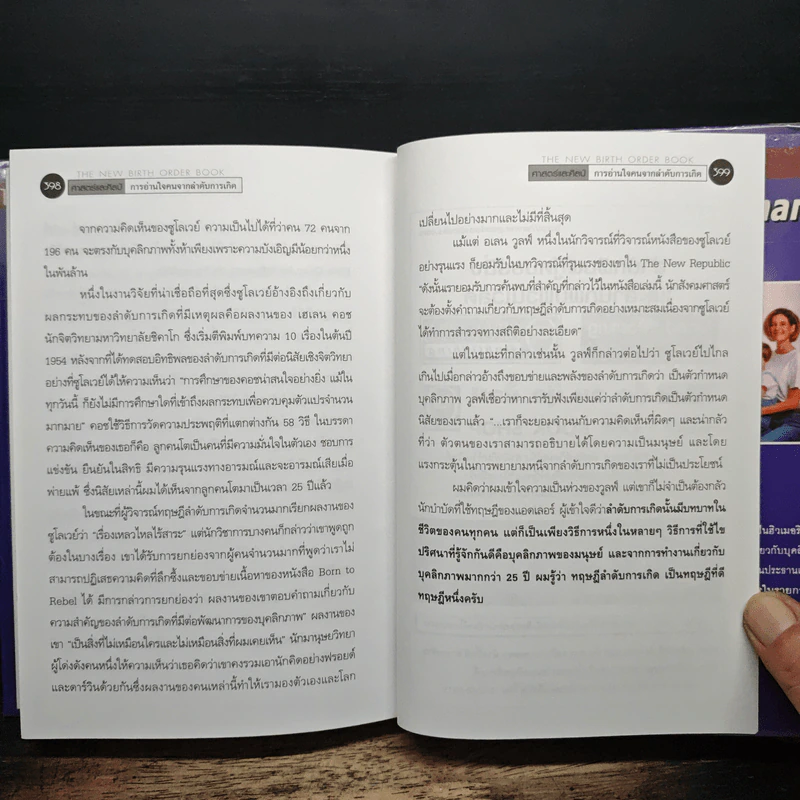 THE NEW BIRTH ORDER BOOK
398 ศาสตร์และศิลป์ การอ่านใจคนจากลำดับการเกิด
จากความคิดเห็นของซูโลเวย์ ความเป็นไปได้ที่ว่าคน 72 คนจาก
196 คน จะตรงกับบุคลิกภาพทั้งห้าเพียงเพราะความบังเอิญมีน้อยกว่าหนึ่ง
ในพันล้าน
หนึ่งในงานวิจัยที่น่าเชื่อถือที่สุดซึ่งซูโลเวย์อ้างอิงถึงเกี่ยวกับ
ผลกระทบของลำดับการเกิดที่มีเหตุผลคือผลงานของ เฮเลน คอช
นักจิตวิทยามหาวิทยาลัยชิคาโก ซึ่งเริ่มตีพิมพ์บทความ 10 เรื่องในต้นปี
1954 หลังจากที่ได้ทดสอบอิทธิพลของลำดับการเกิดที่มีต่อนิสัยเชิงจิตวิทยา
อย่างที่ซูโลเวย์ได้ให้ความเห็นว่า "การศึกษาของคอชน่าสนใจอย่างยิ่ง แม้ใน
ทุกวันนี้ ก็ยังไม่มีการศึกษาใดที่เข้าถึงผลกระทบเพื่อควบคุมตัวแปรจำนวน
มากมาย" คอชใช้วิธีการวัดความประพฤติที่แตกต่างกัน 58 วิธี ในบรรดา
ความคิดเห็นของเธอก็คือ ลูกคนโตเป็นคนที่มีความมั่นใจในตัวเอง ชอบการ
แข่งขัน ยืนยันในสิทธิ มีความรุนแรงทางอารมณ์และจะอารมณ์เสียเมื่อ
พ่ายแพ้ ซึ่งนิสัยเหล่านี้ผมได้เห็นจากลูกคนโตมาเป็นเวลา 25 ปีแล้ว
ในขณะที่ผู้วิจารณ์ทฤษฎีลำดับการเกิดจำนวนมากเรียกผลงานของ
ซูโลเวย์ว่า "เรื่องเหลวไหลไร้สาระ" แต่นักวิชาการบางคนก็กล่าวว่าเขาพูดถูก
ต้องในบางเรื่อง เขาได้รับการยกย่องจากผู้คนจำนวนมากที่พูดว่าเราไม่
สามารถปฏิเสธความคิดที่ลึกซึ้งและขอบข่ายเนื้อหาของหนังสือ Born to
Rebel ได้ มีการกล่าวการยกย่องว่า ผลงานของเขาตอบคำถามเกี่ยวกับ
ความสำคัญของลำดับการเกิดที่มีต่อพัฒนาการของบุคลิกภาพ" ผลงานของ
เขา "เป็นสิ่งที่ไม่เหมือนใครและไม่เหมือนสิ่งที่ผมเคยเห็น" นักมานุษยวิทยา
ผู้โด่งดังคนหนึ่งให้ความเห็นว่าเธอคิดว่าเขาคงรวมเอานักคิดอย่างฟรอยด์
และดาร์วินด้วยกันซึ่งผลงานของคนเหล่านี้ทำให้เรามองตัวเองและโลก
THE NEW BIRTH ORDER BOOK
ศาสตร์และศิลป์ การอ่านใจคนจากลำดับการเกิด 399
เปลี่ยนไปอย่างมากและไม่มีที่สิ้นสุด
แม้แต่ อเลน วูลฟ์ หนึ่งในนักวิจารณ์ที่วิจารณ์หนังสือของซูโลเวย์
อย่างรุนแรง ก็ยอมรับในบทวิจารณ์ที่รุนแรงของเขาใน The New Republic
"ดังนั้นเรายอมรับการค้นพบที่สำคัญที่กล่าวไว้ในหนังสือเล่มนี้ นักสังคมศาสตร์
จะต้องตั้งคำถามเกี่ยวกับทฤษฎีลำดับการเกิดอย่างเหมาะสมเนื่องจากซูโลเวย์
ได้ทำการสำรวจทางสถิติอย่างละเอียด"
แต่ในขณะที่กล่าวเช่นนั้น วูลฟ์ก็กล่าวต่อไปว่า ซูโลเวย์ไปไกล
เกินไปเมื่อกล่าวอ้างถึงขอบข่ายและพลังของลำดับการเกิดว่า เป็นตัวกำหนด
บุคลิกภาพ วูลฟ์เชื่อว่าหากเรารับฟังเพียงแค่ว่าลำดับการเกิดเป็นตัวกำหนด
นิสัยของเราแล้ว "...เราก็จะยอมจำนนกับความคิดเห็นที่ผิดๆ และน่ากลัว
ที่ว่า ตัวตนของเราสามารถอธิบายได้โดยความเป็นมนุษย์ และโดย
แรงกระตุ้นในการพยายามหนีจากลำดับการเกิดของเราที่ไม่เป็นประโยชน์
ผมคิดว่าผมเข้าใจความเป็นห่วงของวูลฟ์ แต่เขาก็ไม่จำเป็นต้องกลัว
นักบำบัดที่ใช้ทฤษฎีของแอดเลอร์ ผู้เข้าใจดีว่าลำดับการเกิดนั้นมีบทบาทใน
ชีวิตของคนทุกคน แต่ก็เป็นเพียงวิธีการหนึ่งในหลายๆ วิธีการที่ใช้ไข
ปริศนาที่รู้จักกันดีคือบุคลิกภาพของมนุษย์ และจากการทำงานเกี่ยวกับ
บุคลิกภาพมากกว่า 25 ปี ผมรู้ว่า ทฤษฎีลำดับการเกิด เป็นทฤษฎีที่ดี
ทฤษฎีหนึ่งครับ